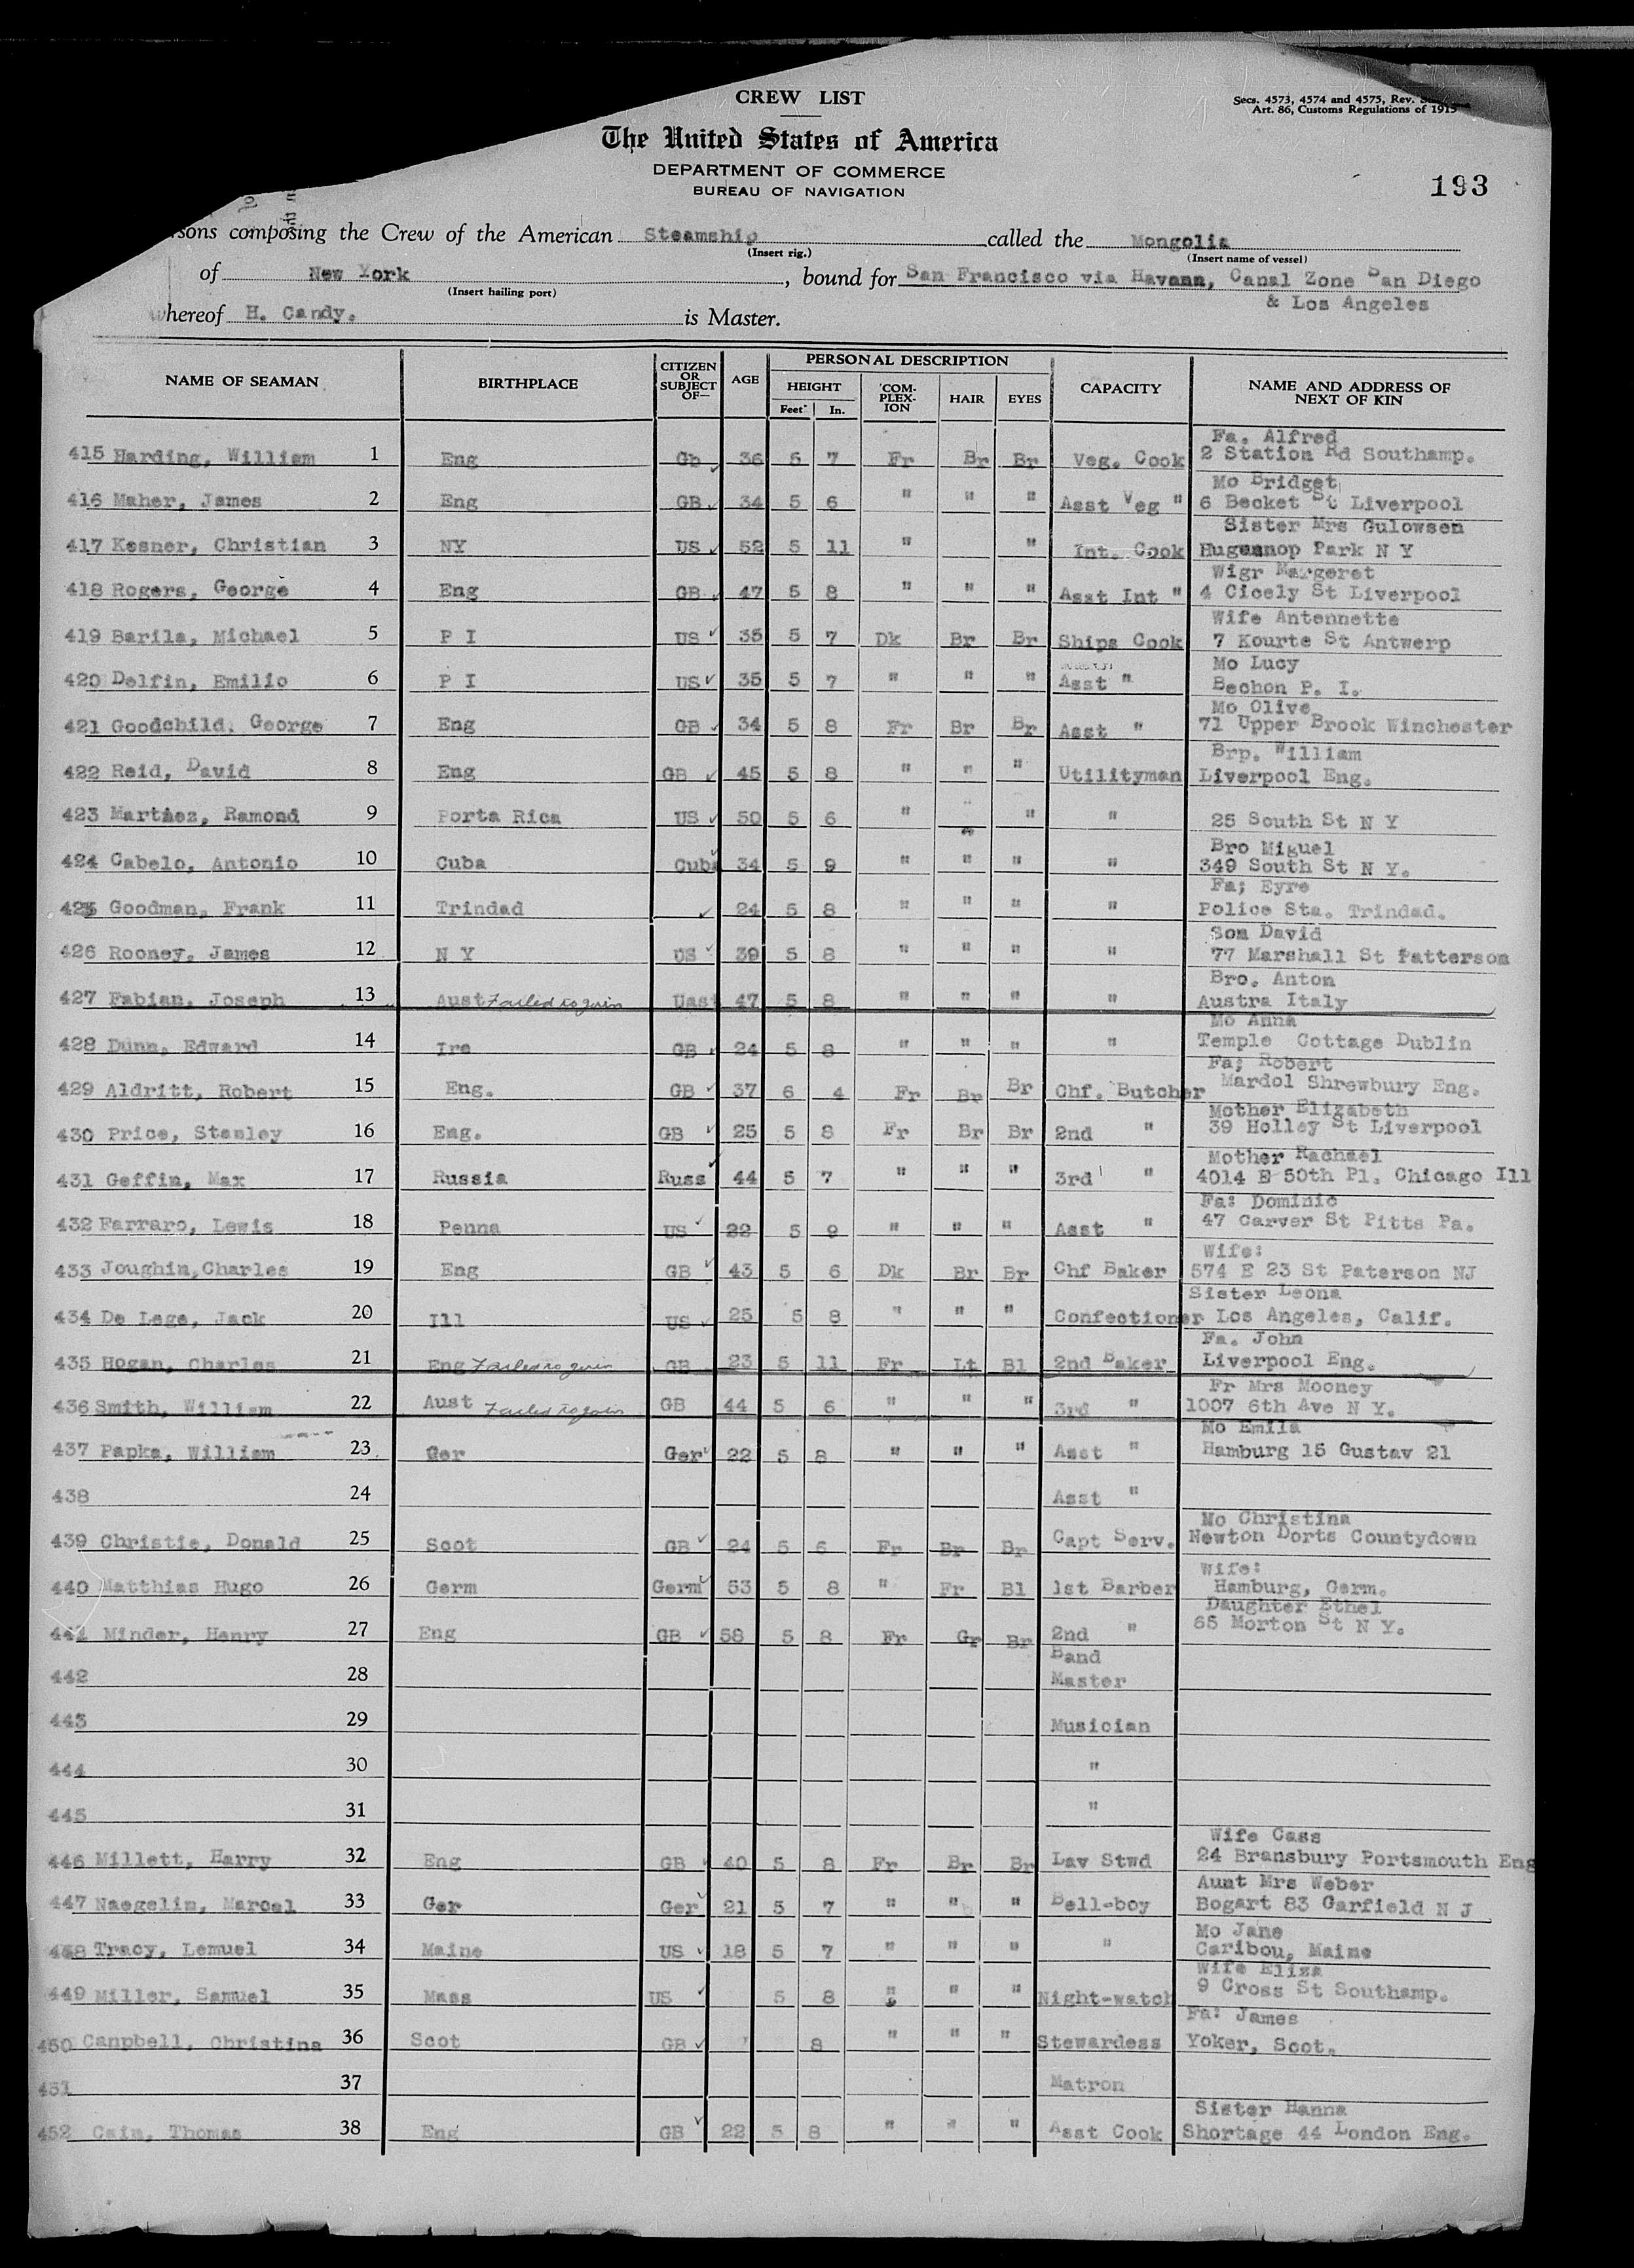 CREW LIST
Secs. 4573, 4574 and 4575, Rev.
Art. 86, Customs Regulations of 1915
The United States of America
DEPARTMENT OF COMMERCE
BUREAU OF NAVIGATION
193
sons composing the Crew of the American Steamship called the Mongolia
(Insert rig.) (Insert name of vessel)
of New York, bound for San Francisco via Havana, Canal Zone San Diego
(Insert hailing port) & Los Angeles
whereof H. Candy. is Master.
NAME OF SEAMAN BIRTHPLACE CITIZEN OR SUBJECT OF— AGE PERSONAL DESCRIPTION CAPACITY NAME AND ADDRESS OF NEXT OF KIN
HEIGHT COM-PLEX-ION HAIR EYES
Feet In.
Fa. Alfred
415 Harding, William 1 Eng Gb 36 5 7 Fr Br Br Veg. Cook 2 Station Rd Southamp.
Mo Bridget
416 Maher, James 2 Eng GB 34 5 6 " " " Asst Veg " 6 Becket St Liverpool
Sister Mrs Gulowsen
417 Kesner, Christian 3 NY US 52 5 11 " " Int. Cook Park N Y
Wigr Margeret
418 Rogers, George 4 Eng GB 47 5 8 " " " Asst Int " 4 Cicely St Liverpool
Wife Antennette
419 Barila, Michael 5 P I US 35 5 7 Dk Br Br Ships Cook 7 Kourte St Antwerp
Mo Lucy
420 Delfin, Emilio 6 P I US 35 5 7 " " " Asst " Bechon P. I.
Mo Olive
421 Goodchild. George 7 Eng GB 34 5 8 Fr Br Br Asst " 71 Upper Brook Winchester
Brp. William
422 Reid, David 8 Eng GB 45 5 8 " " " Utilityman Liverpool Eng.
423 Martinez, Ramond 9 Porta Rica US 50 5 6 " " " 25 South St N Y
Bro Miguel
424 Cabelo, Antonio 10 Cuba Cuba 34 5 9 " " " " 349 South St N Y.
Fa; Eyre
425 Goodman, Frank 11 Trindad 24 5 8 " " " " Police Sta. Trindad.
Son David
426 Rooney, James 12 N Y US 39 5 8 " " " " 77 Marshall St Patterson
Bro. Anton
427 Fabian, Joseph 13 Aust Failed to join Uast 47 5 8 " " " " Austra Italy
Mo Anna
428 Dunn, Edward 14 Ire GB 24 5 8 " " " " Temple Cottage Dublin
Fa; Robert
429 Aldritt, Robert 15 Eng. GB 37 6 4 Fr Br Br Chf. Butcher Mardol Shrewbury Eng.
Mother Elizabeth
430 Price, Stanley 16 Eng. GB 25 5 8 Fr Br Br 2nd " 39 Holley St Liverpool
Mother Rachael
431 Geffin, Max 17 Russia Russ 44 5 7 " " " 3rd " 4014 E 50th Pl. Chicago Ill
Fa: Dominic
432 Farraro, Lewis 18 Penna US 22 5 9 " " " Asst " 47 Carver St Pitts Pa.
Wife:
433 Joughin,Charles 19 Eng GB 43 5 6 Dk Br Br Chf Baker 574 E 23 St Paterson NJ
Sister Leona
434 De Lege, Jack 20 Ill US 25 5 8 " " " Confectioner Los Angeles, Calif.
Fa. John
435 Hogan, Charles 21 Eng Failed to join GB 23 5 11 Fr Lt Bl 2nd Baker Liverpool Eng.
Fr Mrs Mooney
436 Smith, William 22 Aust Failed to join GB 44 5 6 " " " 3rd " 1007 6th Ave N Y.
Mo Emila
437 Papka, William 23 Ger Ger 22 5 8 " " " Asst " Hamburg 15 Gustav 21
438 24 Asst "
Mo Christina
439 Christie, Donald 25 Scot GB 24 5 6 Fr Br Br Capt Serv. Newton Dorts Countydown
Wife:
440 Matthias Hugo 26 Germ Germ 53 5 8 " Fr Bl 1st Barber Hamburg, Germ.
Daughter Ethel
441 Minder, Henry 27 Eng GB 58 5 8 Fr Gr Br 2nd " 65 Morton St N Y.
Band
442 28 Master
443 29 Musician
444 30 "
445 31 "
Wife Cass
446 Millett, Harry 32 Eng GB 40 5 8 Fr Br Br Lav Stwd 24 Bransbury Portsmouth Eng
Aunt Mrs Weber
447 Naegelin, Marcel 33 Ger Ger 21 5 7 " " " Bell-boy Bogart 83 Garfield N J
Mo Jane
448 Tracy, Lemuel 34 Maine US 18 5 7 " " " " Caribou, Maine
Wife Eliza
449 Miller, Samuel 35 Mass US 5 8 " " " Night-watch 9 Cross St Southamp.
Fa: James
450 Canpbell, Christina 36 Scot GB 8 " " " Stewardess Yoker, Scot.
451 37 Matron
Sister Hanna
452 Cain, Thomas 38 Eng GB 22 5 8 " " " Asst Cook Shortage 44 London Eng.